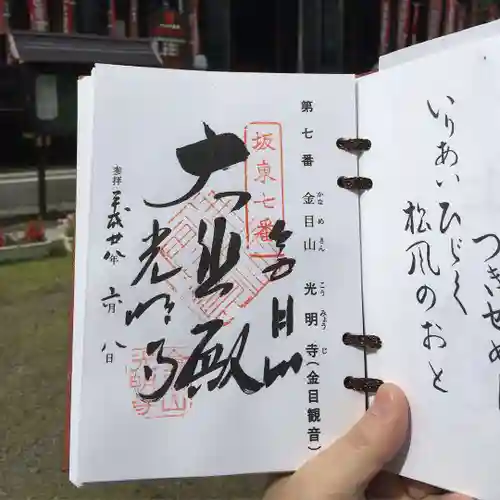 いりあいひゞく
松風のおと
第七番 金目山 光明寺(金目観音)
かなめさん こうみょうじ
坂東七番
金目山
大悲殿
光明寺
参拝 平成廿八年 六月 八日